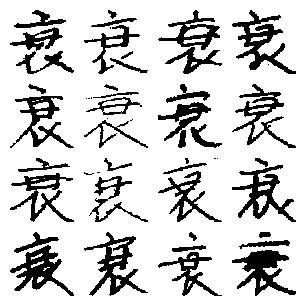 衰衰衰衰
衰衰衰衰
衰衰衰衰
衰衰衰衰